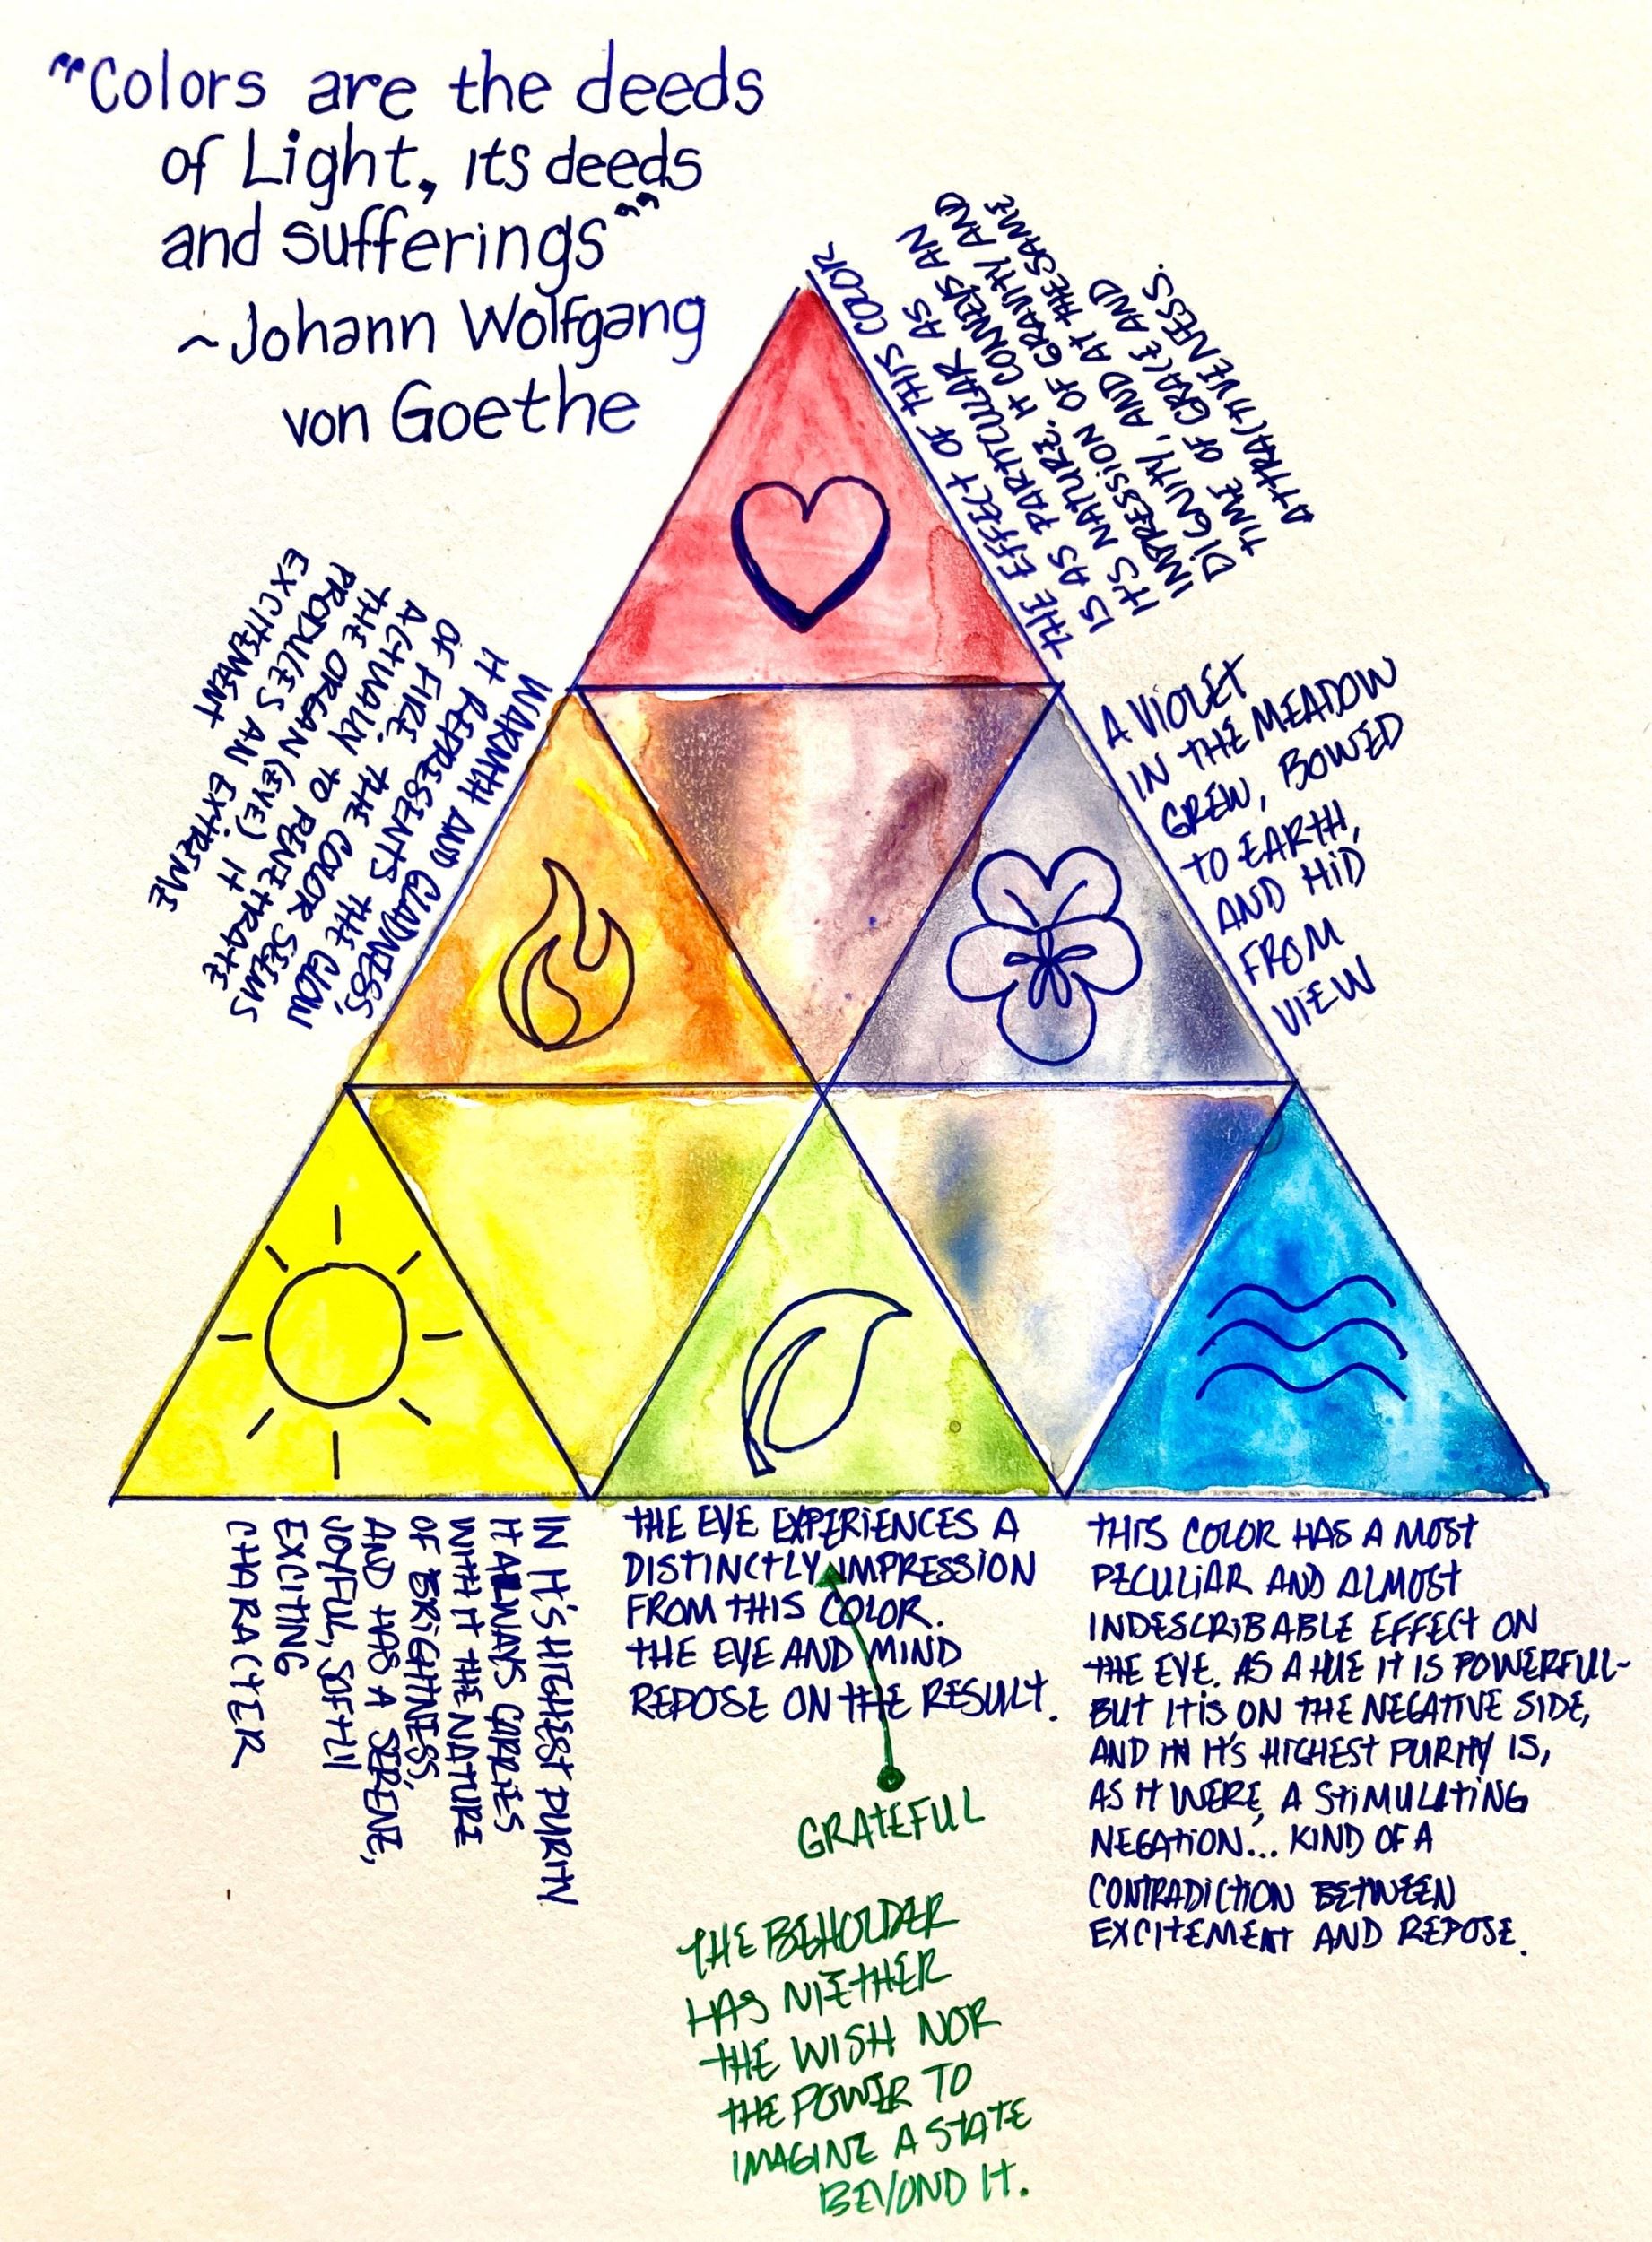 "Colors are the deeds
of Light, its deeds
and sufferings"
~Johann Wolfgang
von Goethe
THE EFFECT OF THIS COLOR
IS AS PARTICULAR AS
IT'S NATURE. IT CONVEYS AN
IMPRESSION OF GRAVITY AND
DIGNITY, AND AT THE SAME
TIME OF GRACE AND
ATTRACTIVENESS.
WARMTH AND GLADNESS,
IT REPRESENTS THE GLOW
OF FIRE. THE COLOR SEEMS
ACTUALLY TO PENETRATE
THE ORGAN (EYE) IT
PRODUCES AN EXTREME
EXCITEMENT
A VIOLET
IN THE MEADOW
GREW, BOWED
TO EARTH,
AND HID
FROM
VIEW
IN IT'S HIGHEST PURITY
IT ALWAYS CARRIES
WITH IT THE NATURE
OF BRIGHTNESS,
AND HAS A SERENE,
JOYFUL, SOFTLY
EXCITING
CHARACTER
THE EYE EXPERIENCES A
DISTINCTLY IMPRESSION
FROM THIS COLOR.
THE EYE AND MIND
REPOSE ON THE RESULT.
GRATEFUL
THE BEHOLDER
HAS NIETHER
THE WISH NOR
THE POWER TO
IMAGINE A STATE
BEYOND IT.
THIS COLOR HAS A MOST
PECULIAR AND ALMOST
INDESCRIBABLE EFFECT ON
THE EYE. AS A HUE IT IS POWERFUL-
BUT IT IS ON THE NEGATIVE SIDE,
AND IN IT'S HIGHEST PURITY IS,
AS IT WERE, A STIMULATING
NEGATION... KIND OF A
CONTRADICTION BETWEEN
EXCITEMENT AND REPOSE.